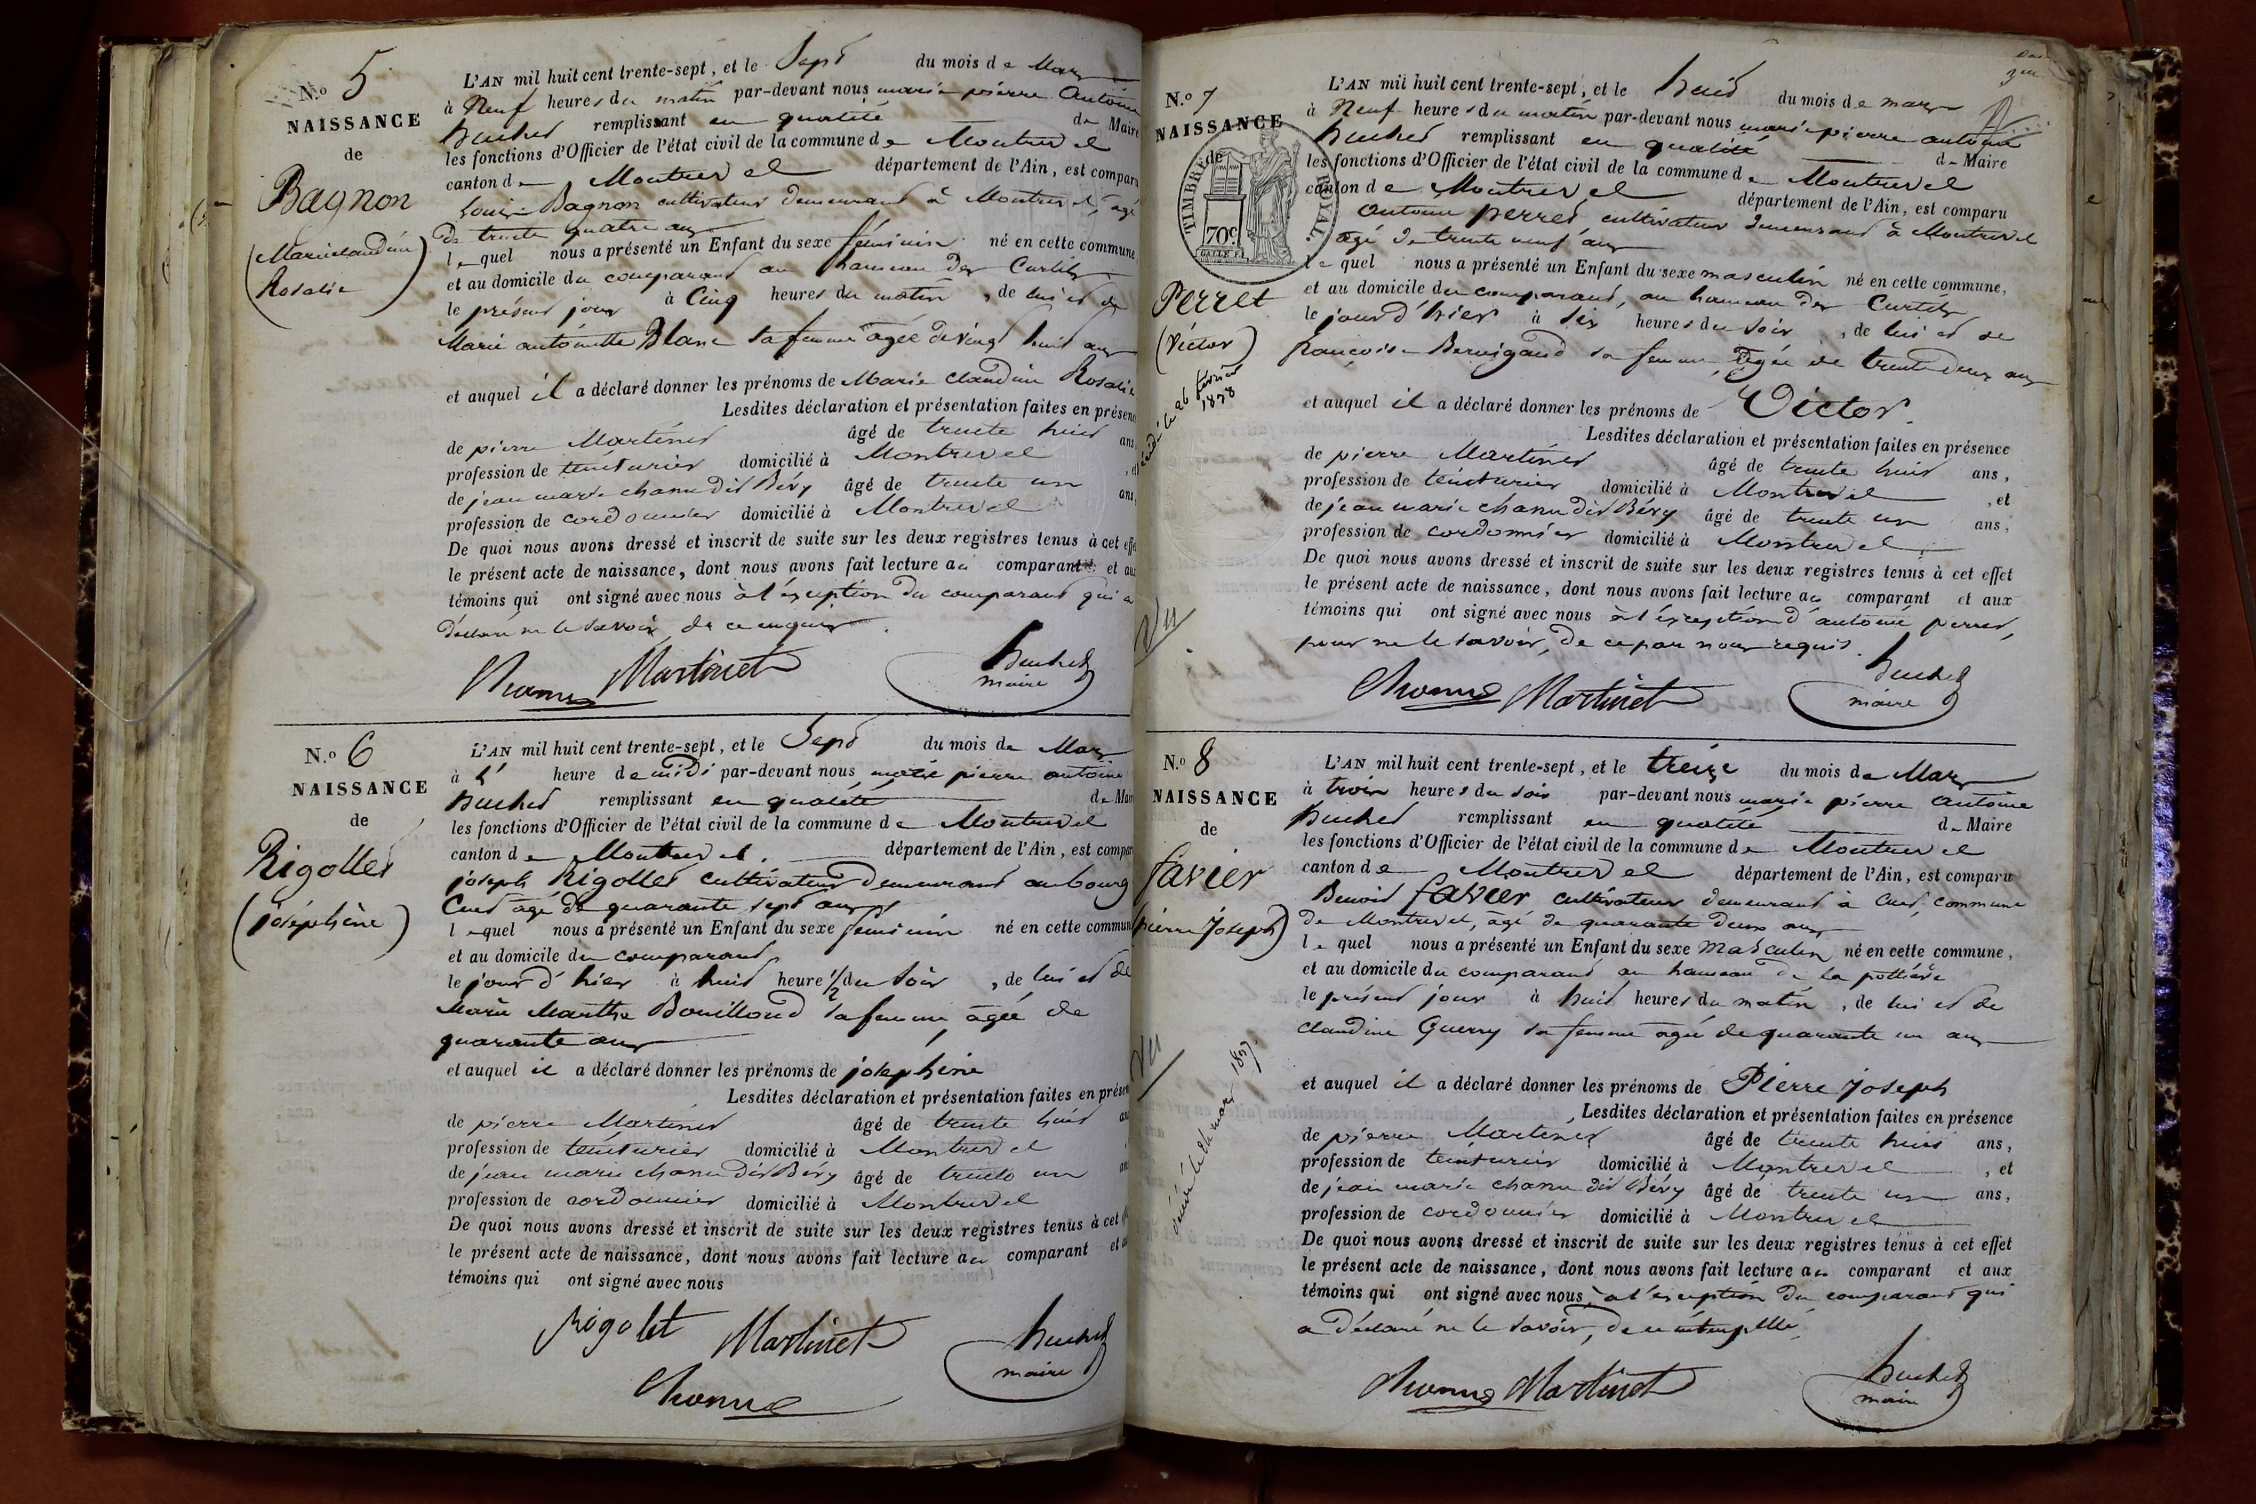 N.º 5
NAISSANCE
de
Bagnon
(Marie claudine
Rosalie)
L'AN mil huit cent trente-sept, et le Sept du mois de Mars
à Neuf heures du matin par-devant nous marie pierre Antoine
huchet remplissant en qualité de Maire
les fonctions d'Officier de l'état civil de la commune de Montrevel
canton de Montrevel département de l'Ain, est comparu
Louis Bagnon cultivateur demeurant à Montrevel, agé
de trente quatre ans
lequel nous a présenté un Enfant du sexe féminin né en cette commune,
et au domicile du comparant au hameau des Curtils
le présent jour à Cinq heures du matin, de lui et de
Marie antoinette Blanc sa femme agée de vingt huit ans
et auquel il a déclaré donner les prénoms de Marie claudine Rosalie
Lesdites déclaration et présentation faites en présence
de pierre Martinet âgé de trente huit ans
profession de teinturier domicilié à Montrevel, et
de jean marie chanu dit Béry âgé de trente un ans,
profession de cordonnier domicilié à Montrevel
De quoi nous avons dressé et inscrit de suite sur les deux registres tenus à cet effet
le présent acte de naissance, dont nous avons fait lecture au comparant et aux
témoins qui ont signé avec nous à l'exception du comparant qui a
déclaré ne le savoir de ce enquis.
Chanu Martinet huchet
maire
N.º 6
NAISSANCE
de
Rigollet
(joséphine)
L'AN mil huit cent trente-sept, et le Sept du mois de Mars
à heure de midi par-devant nous marie pierre antoine
huchet remplissant en qualité de Maire
les fonctions d'Officier de l'état civil de la commune de Montrevel
canton de Montrevel. département de l'Ain, est comparu
joseph Rigollet cultivateur demeurant au bourg
Cuet agé de quarante sept ans
lequel nous a présenté un Enfant du sexe feminin né en cette commune
et au domicile du comparant
le jour d'hier à huit heure 1/2 du soir, de lui et de
Marie Marthe Bouilloud sa femme agée de
quarante ans
et auquel il a déclaré donner les prénoms de josephine
Lesdites déclaration et présentation faites en présence
de pierre Martinet âgé de trente huit ans
profession de teinturier domicilié à Montrevel
de jean marie chanu dit Béry âgé de trente un ans
profession de cordonnier domicilié à Montrevel
De quoi nous avons dressé et inscrit de suite sur les deux registres tenus à cet
le présent acte de naissance, dont nous avons fait lecture au comparant et aux
témoins qui ont signé avec nous
Rigolet Martinet huchet
maire
Chanu
N.º 7
NAISSANCE
de
TIMBRE ROYAL.
70c
Perret
(Victor)
décédé le 26 février
1838
Vu
L'AN mil huit cent trente-sept, et le huit du mois de mars
à Neuf heures du matin par-devant nous marie pierre antoine
huchet remplissant en qualité de Maire
les fonctions d'Officier de l'état civil de la commune de Montrevel
canton de Montrevel département de l'Ain, est comparu
antoine perret cultivateur demeurant à Montrevel
agé de trente neuf ans
lequel nous a présenté un Enfant du sexe masculin né en cette commune,
et au domicile du comparant, au hameau des Curtils
le jour d'hier à six heures du soir, de lui et de
françoise Bernigaud sa femme, agée de trente deux ans
et auquel il a déclaré donner les prénoms de Victor.
Lesdites déclaration et présentation faites en présence
de pierre Martinet âgé de trente huit ans,
profession de teinturier domicilié à Montrevel, et
de jean marie chanu dit Béry âgé de trente un ans,
profession de cordonnier domicilié à Montrevel.
De quoi nous avons dressé et inscrit de suite sur les deux registres tenus à cet effet
le présent acte de naissance, dont nous avons fait lecture au comparant et aux
témoins qui ont signé avec nous à l'exception d'antoine perret,
pour ne le savoir, de ce par nous requis.
Chanu Martinet huchet
maire
N.º 8
NAISSANCE
de
favier
(pierre Joseph)
Vu
décédé le mars 1837.
L'AN mil huit cent trente-sept, et le treize du mois de Mars
à trois heures du soir par-devant nous marie pierre antoine
huchet remplissant en qualité de Maire
les fonctions d'Officier de l'état civil de la commune de Montrevel
canton de Montrevel département de l'Ain, est comparu
Benoit favier cultivateur demeurant à Cuet, commune
de Montrevel, agé de quarante deux ans
lequel nous a présenté un Enfant du sexe Masculin né en cette commune,
et au domicile du comparant au hameau de la
le présent jour à huit heures du matin, de lui et de
claudine Guerry sa femme agée de quarante un ans
et auquel il a déclaré donner les prénoms de Pierre joseph
Lesdites déclaration et présentation faites en présence
de pierre Martinet âgé de trente huit ans,
profession de teinturier domicilié à Montrevel, et
de jean marie chanu dit Béry âgé de trente un ans,
profession de cordonnier domicilié à Montrevel
De quoi nous avons dressé et inscrit de suite sur les deux registres tenus à cet effet
le présent acte de naissance, dont nous avons fait lecture au comparant et aux
témoins qui ont signé avec nous, a l'exception du comparant qui
a déclaré ne le savoir, de ce interpellé.
Chanu Martinet huchet
maire